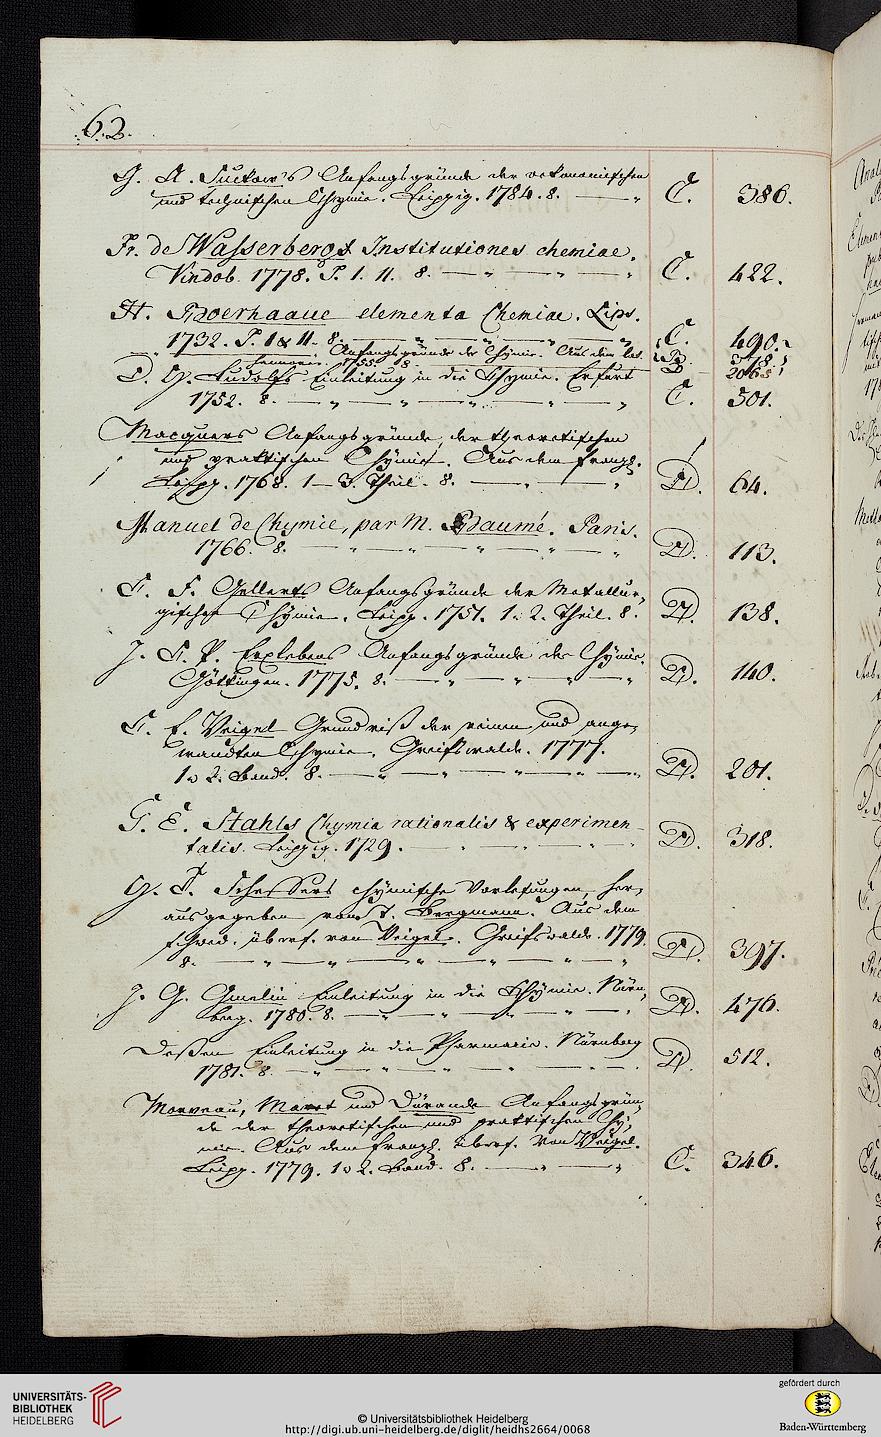 62.
G. A. Suckow's Anfangsgründe der oekonomischen
und technischen Chymie. Leipzig. 1784. 8. — „ C. 386.
Fr. de Wasserberg Institutiones chemiae.
Vindob. 1778. T. I. II. 8. — „ — „ — „ C. 422.
H. Boerhaave elementa Chemiae. Lips.
1732. T. I & II. 8. — „ — „ — „ C. 490.
Anfangsgründe der Chymie. Aus dem lat. B. 378
1755. 8. D 206
D. H. Ludolfs Einleitung in die Chymie. Erfurt
1752. 8. — „ — „ — „ — „ — „ C. 501.
Macquers Anfangsgründe, der theoretischen
und praktischen Chymie. Aus dem franz.
Leipz. 1768. 1–3. Theil. 8. — „ — „ D. 64.
Manuel de Chymie, par M. Baumé. Paris.
1766. 8. — „ — „ — „ — „ — „ D. 113.
C. F. Gellerts Anfangsgründe der Metallur-
gischen Chymie. Leipz. 1751. 1. 2. Theil. 8. D. 138.
J. C. P. Erxlebens Anfangsgründe der Chymie.
Göttingen. 1775. 8. — „ — „ — „ — „ D. 140.
C. E. Weigel Grundriß der reinen und ange-
wandten Chymie. Greifswalde. 1777.
1. 2. Band. 8. — „ — „ — „ — „ D. 201.
G. E. Stahls Chymia rationalis & experimen-
talis. Leipzig. 1729. D. 318.
H. T. Scheffers chymische Vorlesungen, her-
ausgegeben von T. Bergmann. Aus dem
schwed. übers. von Weigel. Greifswalde. 1779.
8. — „ — „ — „ — „ — „ D. 397.
J. G. Gmelin Einleitung in die Chymie. Nürn-
berg. 1780. 8. — „ — „ — „ — „ D. 476.
Deßen Einleitung in die Pharmacie. Nürnberg
1781. 8. — „ — „ — „ — „ D. 512.
Morveau, Maret und Durande Anfangsgrün-
de der theoretischen und praktischen Chy-
mie. Aus dem franz. übers. von Weigel.
Leipz. 1779. 1. 2. Band. 8. — „ — „ C. 346.
UNIVERSITÄTS-
BIBLIOTHEK
HEIDELBERG
© Universitätsbibliothek Heidelberg
http://digi.ub.uni-heidelberg.de/diglit/heidhs2664/0068
gefördert durch
Baden-Württemberg